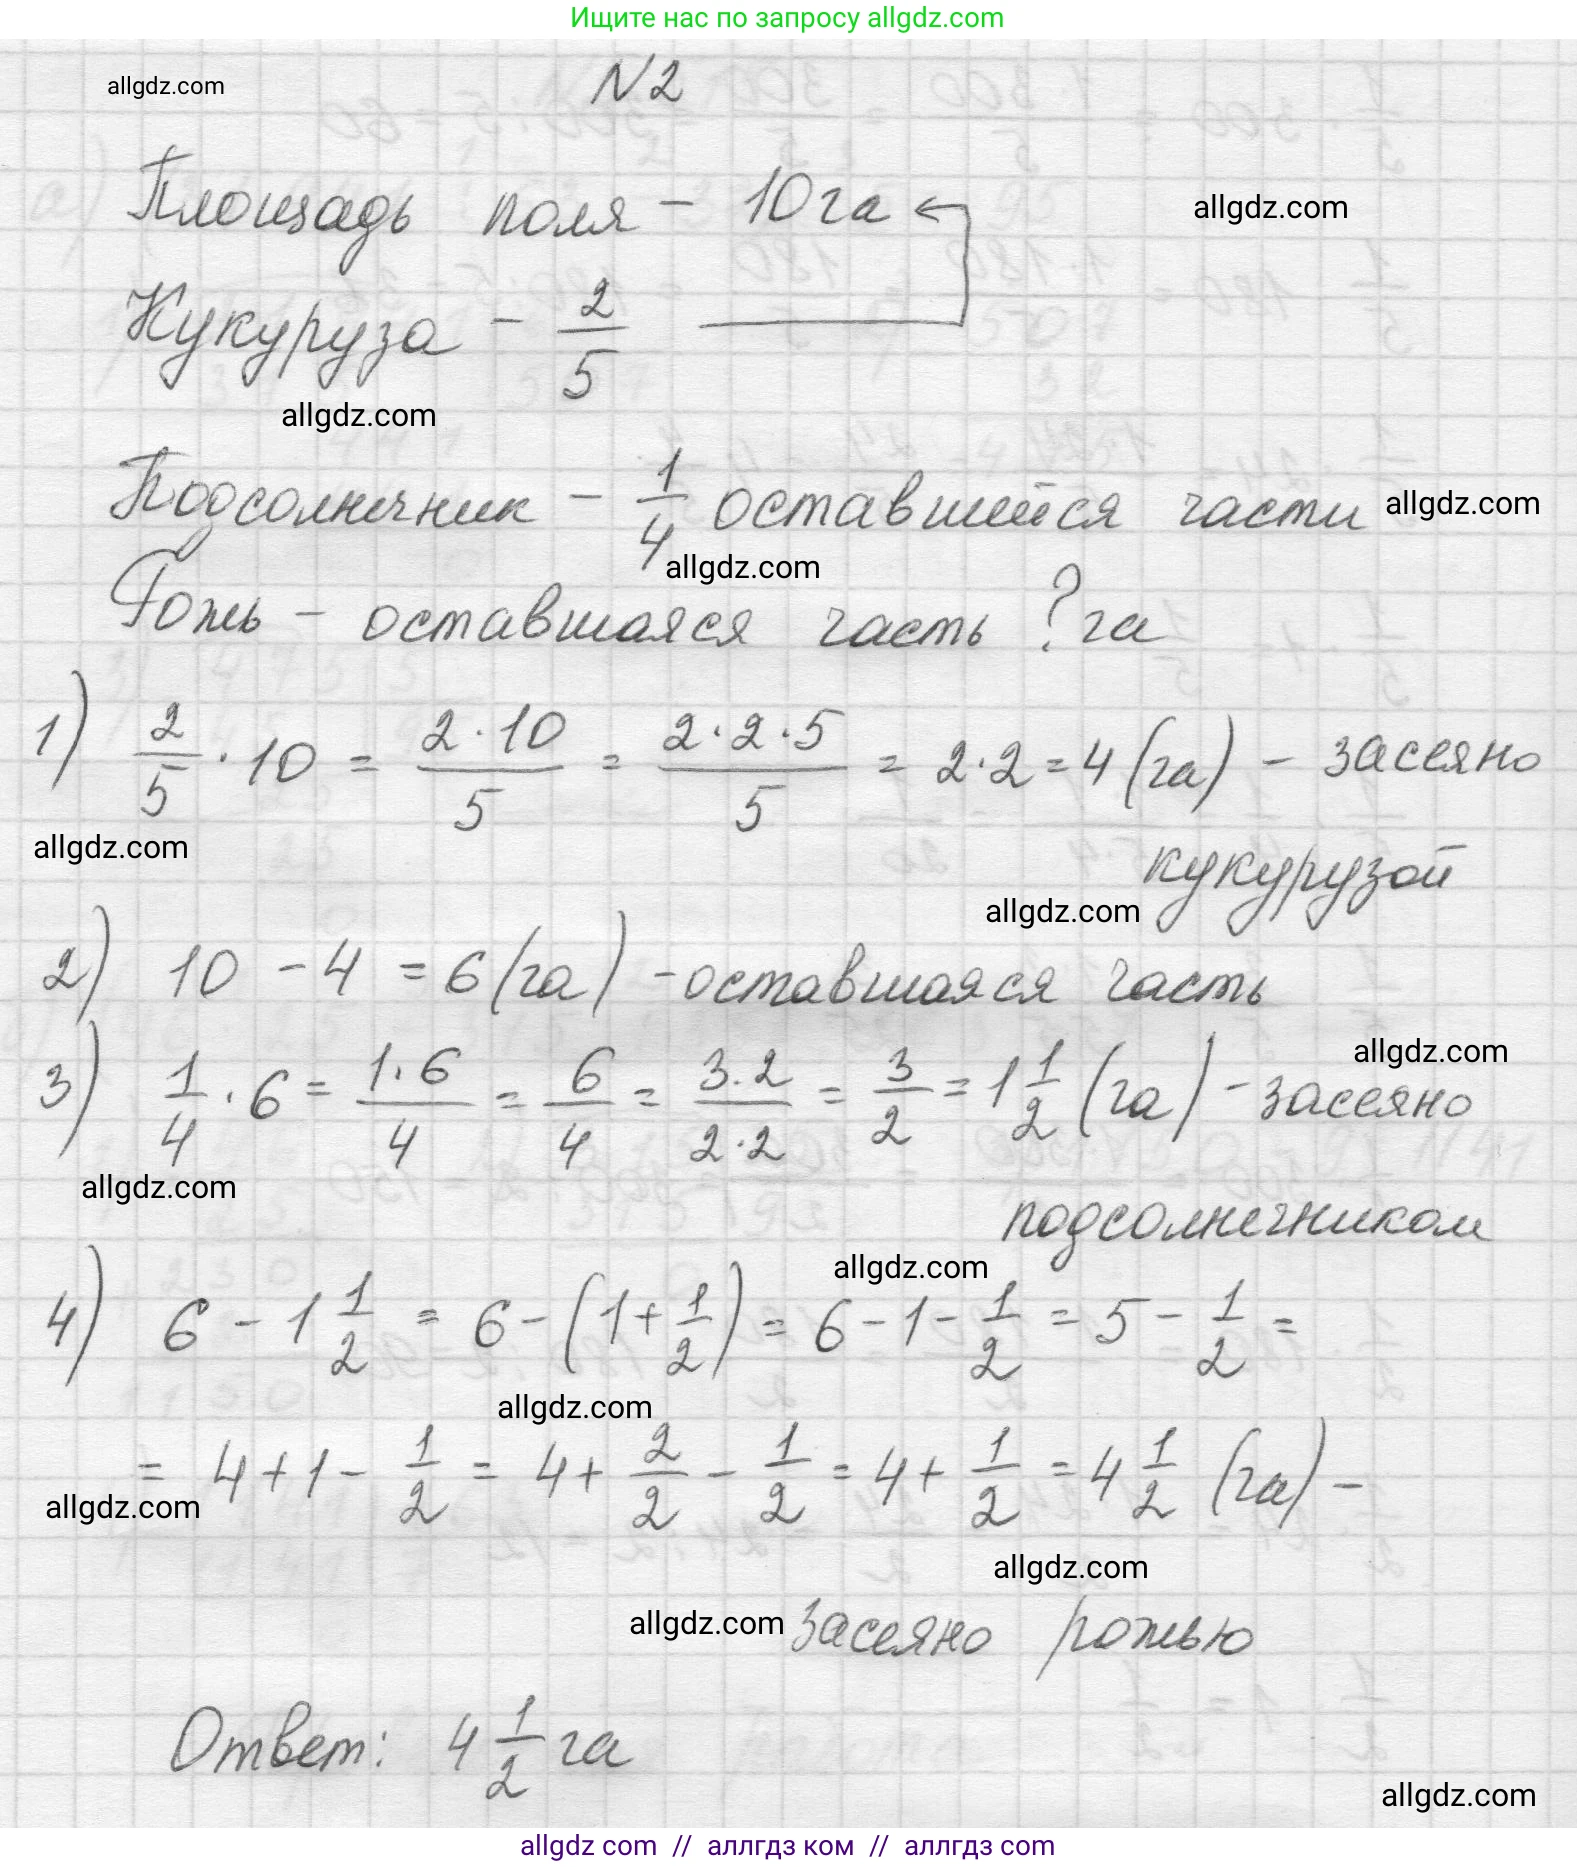 Ищите нас по запросу allgdz.com
allgdz.com
N2
Площадь поля - 10 га
allgdz.com
Кукуруза - 2/5
allgdz.com
Подсолнечник - 1/4 оставшейся части
allgdz.com
allgdz.com
Рожь - оставшаяся часть ? га
1) 2/5 · 10 = 2·10/5 = 2·2·5/5 = 2·2 = 4 (га) - засеяно
allgdz.com
кукурузой
allgdz.com
2) 10 - 4 = 6 (га) - оставшаяся часть
allgdz.com
3) 1/4 · 6 = 1·6/4 = 6/4 = 3·2/2·2 = 3/2 = 1 1/2 (га) - засеяно
allgdz.com
подсолнечником
allgdz.com
4) 6 - 1 1/2 = 6 - (1 + 1/2) = 6 - 1 - 1/2 = 5 - 1/2 =
allgdz.com
= 4 + 1 - 1/2 = 4 + 2/2 - 1/2 = 4 + 1/2 = 4 1/2 (га) -
allgdz.com
allgdz.com
allgdz.com
засеяно рожью
Ответ: 4 1/2 га
allgdz.com
allgdz.com // аллгдз ком // аллгдз com